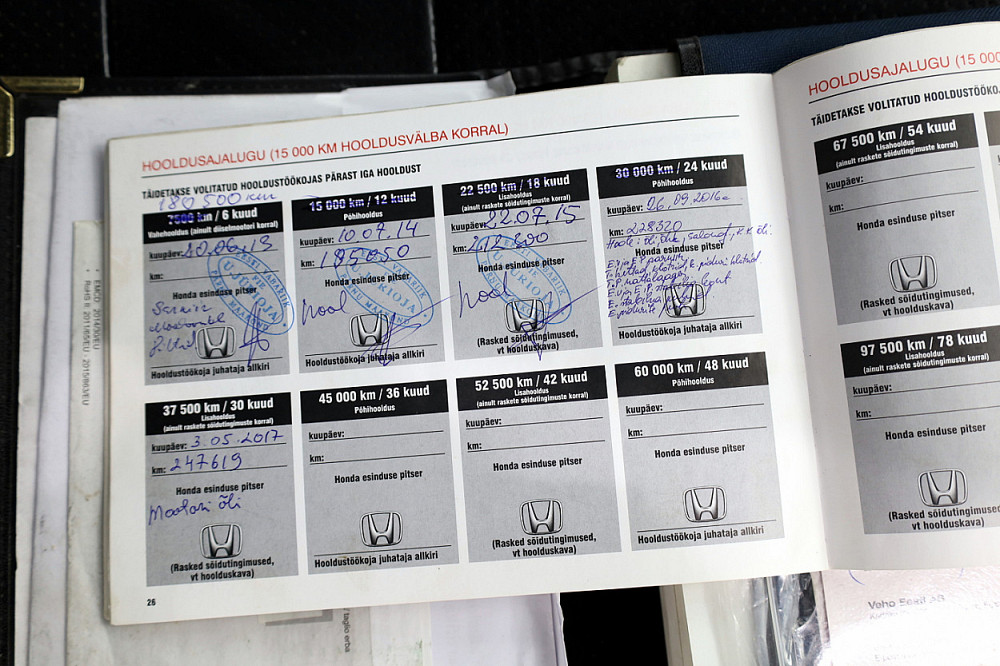 HOOLDUSAJALUGU (15 000 KM HOOLDUSVÄLBA KORRAL)
TÄIDETAKSE VOLITATUD HOOLDUSTÖÖKOJAS PÄRAST IGA HOOLDUST
180 500 km
7500 km / 6 kuud
Vahehooldus (ainult diiselmootori korral)
kuupäev: 10.06.13
km:
Honda esinduse pitser
Hooldustöökoja juhataja allkiri
15 000 km / 12 kuud
Põhihooldus
kuupäev: 10.07.14
km: 185050
Honda esinduse pitser
hool
Hooldustöökoja juhataja allkiri
22 500 km / 18 kuud
Lisahooldus
(ainult raskete sõidutingimuste korral)
kuupäev: 22.07.15
km:
Honda esinduse pitser
hool
(Rasked sõidutingimused,
vt hoolduskava)
30 000 km / 24 kuud
Põhihooldus
kuupäev: 26.09.2016a
km: 228320
Honda esinduse pitser
Hooldustöökoja juhataja allkiri
37 500 km / 30 kuud
Lisahooldus
(ainult raskete sõidutingimuste korral)
kuupäev: 3.05.2017
km: 247619
Honda esinduse pitser
Mootori õli
(Rasked sõidutingimused,
vt hoolduskava)
45 000 km / 36 kuud
Põhihooldus
kuupäev:
km:
Honda esinduse pitser
Hooldustöökoja juhataja allkiri
52 500 km / 42 kuud
Lisahooldus
(ainult raskete sõidutingimuste korral)
kuupäev:
km:
Honda esinduse pitser
(Rasked sõidutingimused,
vt hoolduskava)
60 000 km / 48 kuud
Põhihooldus
kuupäev:
km:
Honda esinduse pitser
Hooldustöökoja juhataja allkiri
26
HOOLDUSAJALUGU (15 000
TÄIDETAKSE VOLITATUD HOOLDUSTÖÖKOJ
67 500 km / 54 kuud
Lisahooldus
(ainult raskete sõidutingimuste korral)
kuupäev:
km:
Honda esinduse pitser
(Rasked sõidutingimused,
vt hoolduskava)
97 500 km / 78 kuud
Lisahooldus
(ainult raskete sõidutingimuste korral)
kuupäev:
km:
Honda esinduse pitser
(Rasked sõidutingimused,
vt hoolduskava)